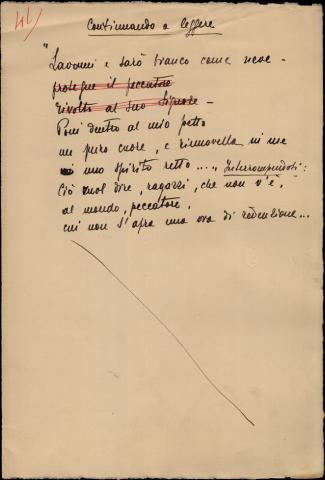 41)
Continuando a leggere
"Lavami e sarò bianco come neve -
prosegue il peccatore
rivolto al Suo Signore -
Poni dentro al mio petto
un puro cuore, e rinnovella in me
uno Spirito retto....." Interrompendosi:
Ciò vuol dire, ragazzi, che non v'è,
al mondo, peccatore,
cui non s'apra una ora di redenzione...